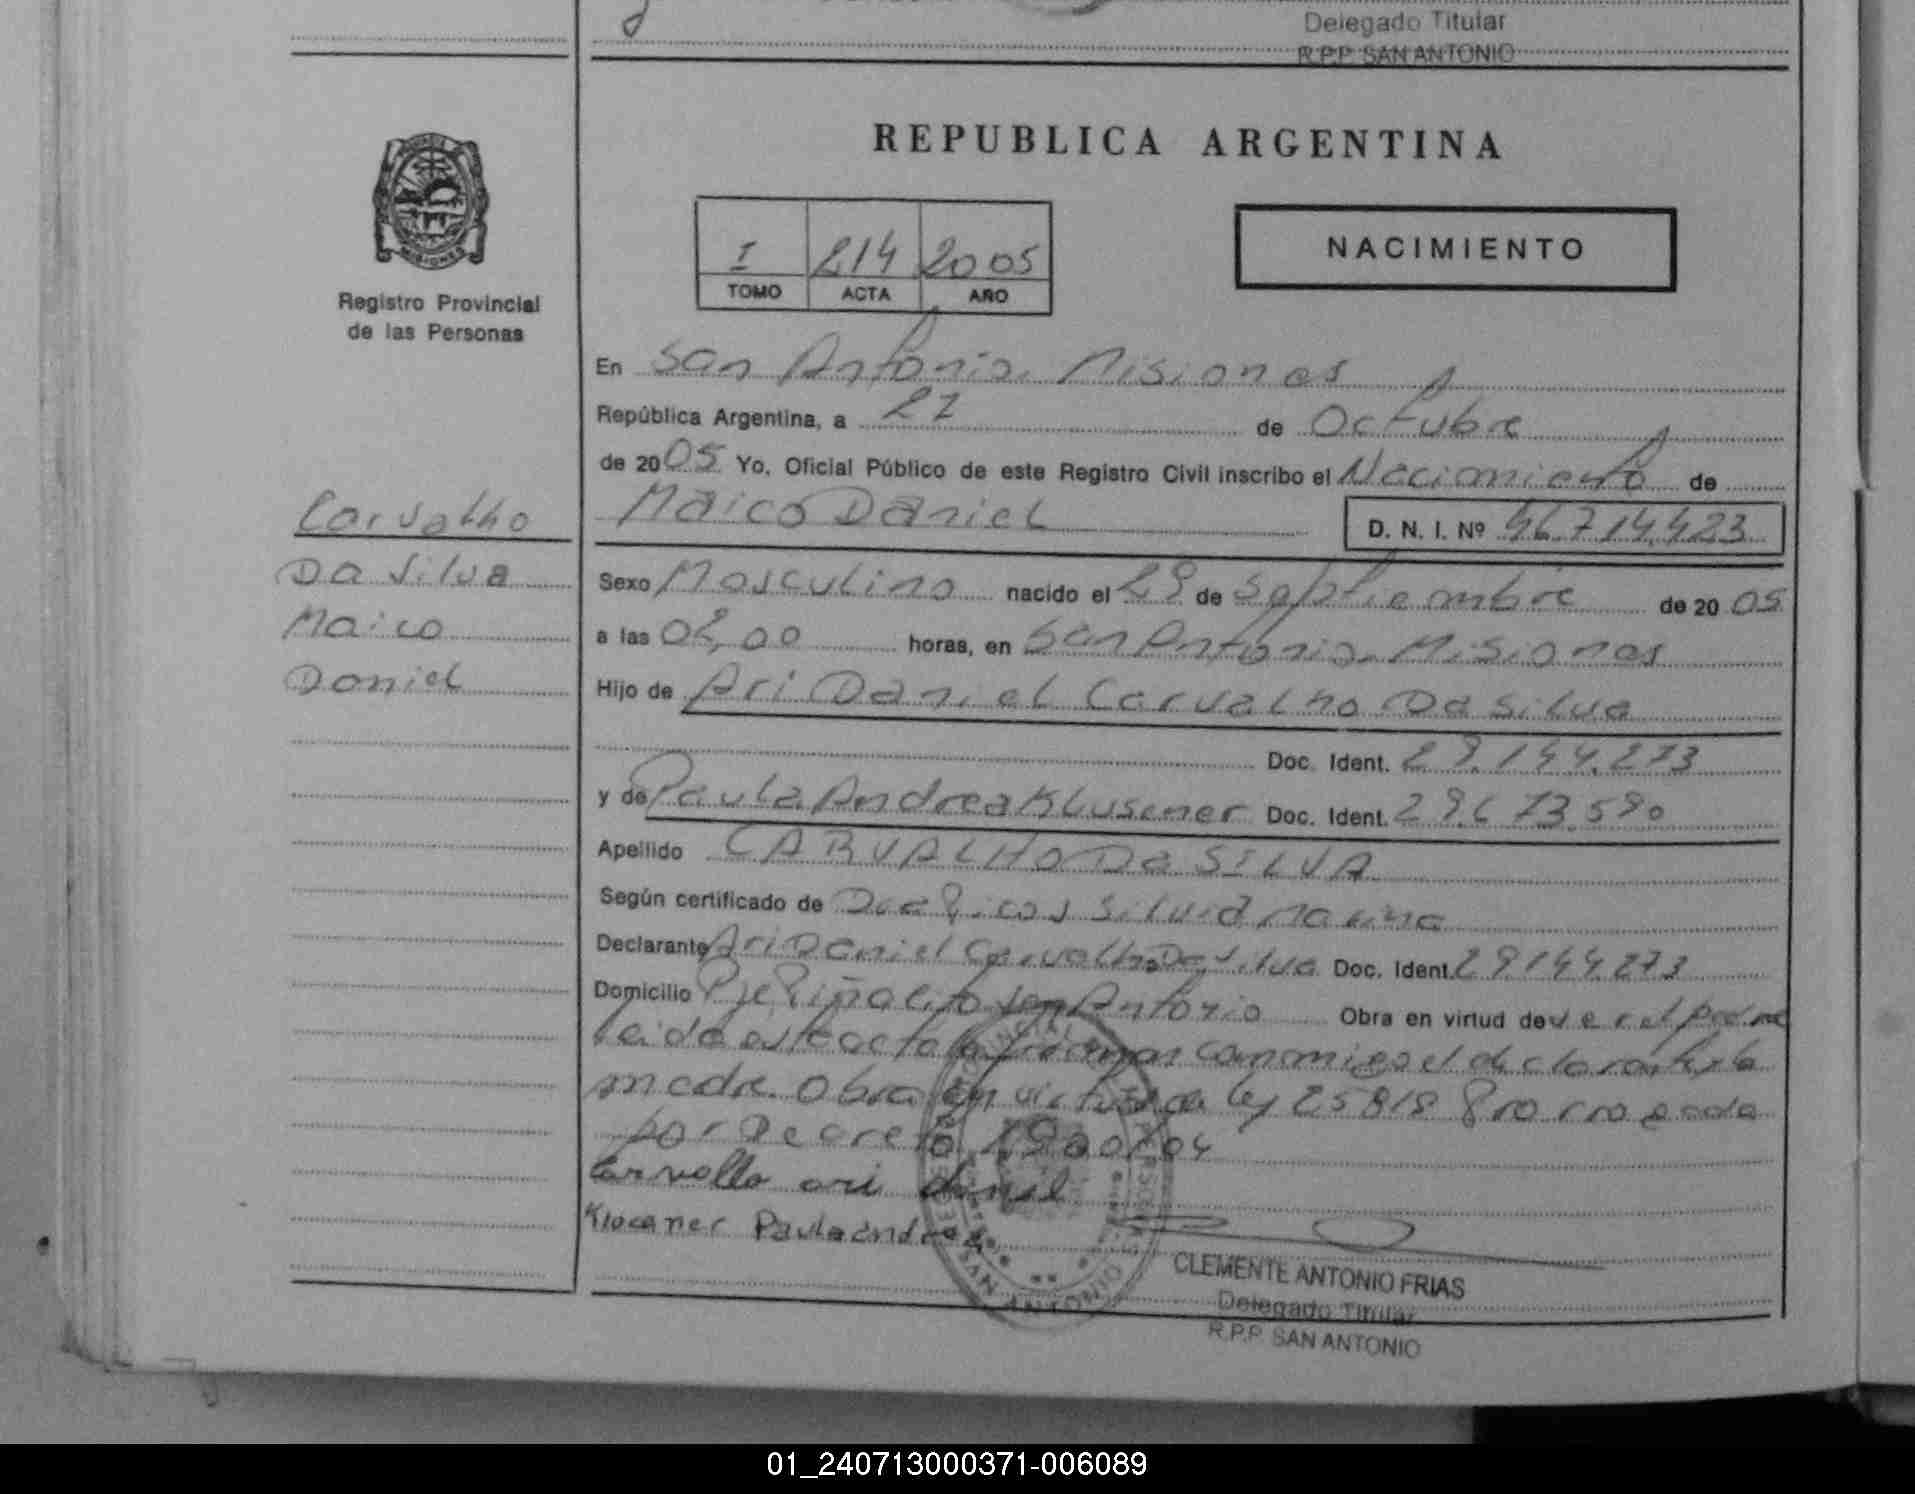 Delegado Titular
R.P.P. SAN ANTONIO
REPUBLICA ARGENTINA
I 214 2005
TOMO ACTA AÑO
NACIMIENTO
MISIONES
Registro Provincial
de las Personas
En San Antonio. Misiones
República Argentina, a 27 de Octubre
de 2005 Yo, Oficial Público de este Registro Civil inscribo el Nacimiento de
Maico Daniel D. N. I. Nº 46.714.423
Carvalho
Da Silva
Maico
Daniel
Sexo Masculino nacido el 29 de Septiembre de 2005
a las 02,00 horas, en San Antonio. Misiones
Hijo de Ari Daniel Carvalho Da Silva
Doc. Ident. 29.144.273
y de Paula Andrea Klusener Doc. Ident. 29.673.590
Apellido CARVALHO Da SILVA
Según certificado de Silvia
Declarante Ari Daniel Carvalho Da Silva Doc. Ident. 29.144.273
Domicilio Pje Piñalito San Antonio Obra en virtud de ser el padre
leida este acta la firman conmigo el declarante y la
madre. Obra en virtud de ley 25818 Prorrogada
por Decreto 1900/04
Carvallo ari danil
Klocaner Paula andrea
CLEMENTE ANTONIO FRIAS
Delegado Titular
R.P.P. SAN ANTONIO
SAN ANTONIO
01_240713000371-006089